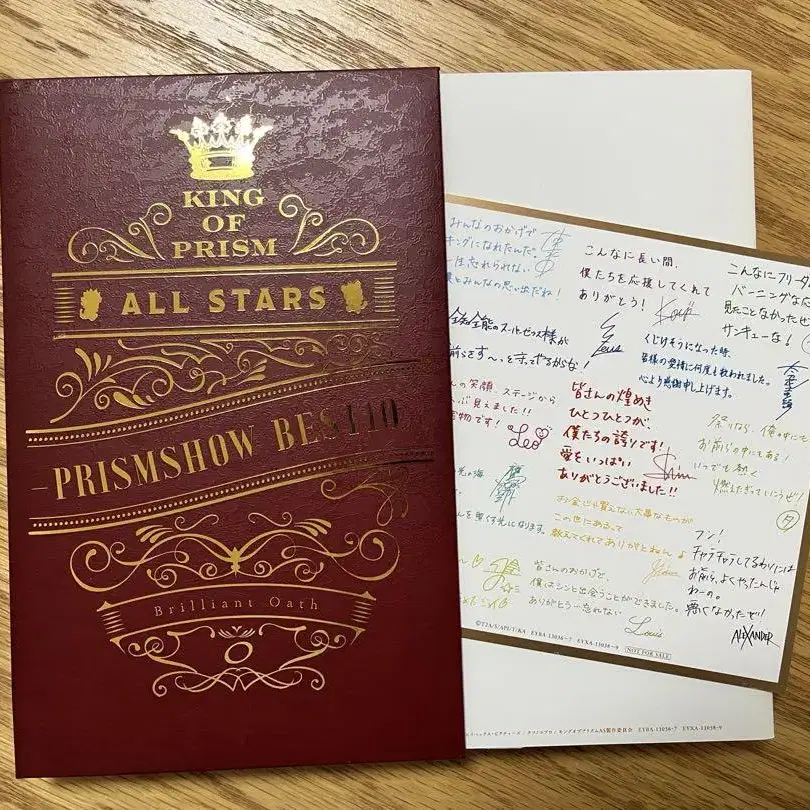 KING
OF
PRISM
ALL STARS
-PRISMSHOW BEST10
Brilliant Oath
みんなのおかげで
キングになれたんだ。
一生忘れられない
みんなの思い出だね!
こんなに長い間、
僕たちを応援してくれて
ありがとう! Kouji
バーニングなに
見たことなかったぜ
サンキューな!
全知全能のスーパーゼウス様が
守ってやるがな!
Zeus
くじけそうになった時、
皆様の愛情に何度も救われました。
心より感謝申し上げます。
の笑顔、ステージから
見えました!!
宝物です! Leo
皆さんの煌めき
ひとつひとつが、
僕たちの誇りです!
愛をいっぱい
ありがとうございました!!
Shin
祭りなら、俺の中にも
お前らの中にもある!
いつでも熱く
燃えたぎっていこうぜ!
光の海
お金でも買えない大事なものが
この世にあるって
教えてくれてありがとねん♪
皆さんのおかげで、
僕はシンと出会うことができました。
ありがとう…忘れない
Louis
フン!
チャラチャラしてるわりには
お前ら、よくやったんじゃ
ねーの。
悪くなかったぜ!!
ALEXANDER
©T2A/S/API/T/KA EYBA-13036~7 EYXA-13038~9
NOT FOR SALE
キングオブプリズムAS製作委員会 EYBA-13036~7 EYXA-13038~9